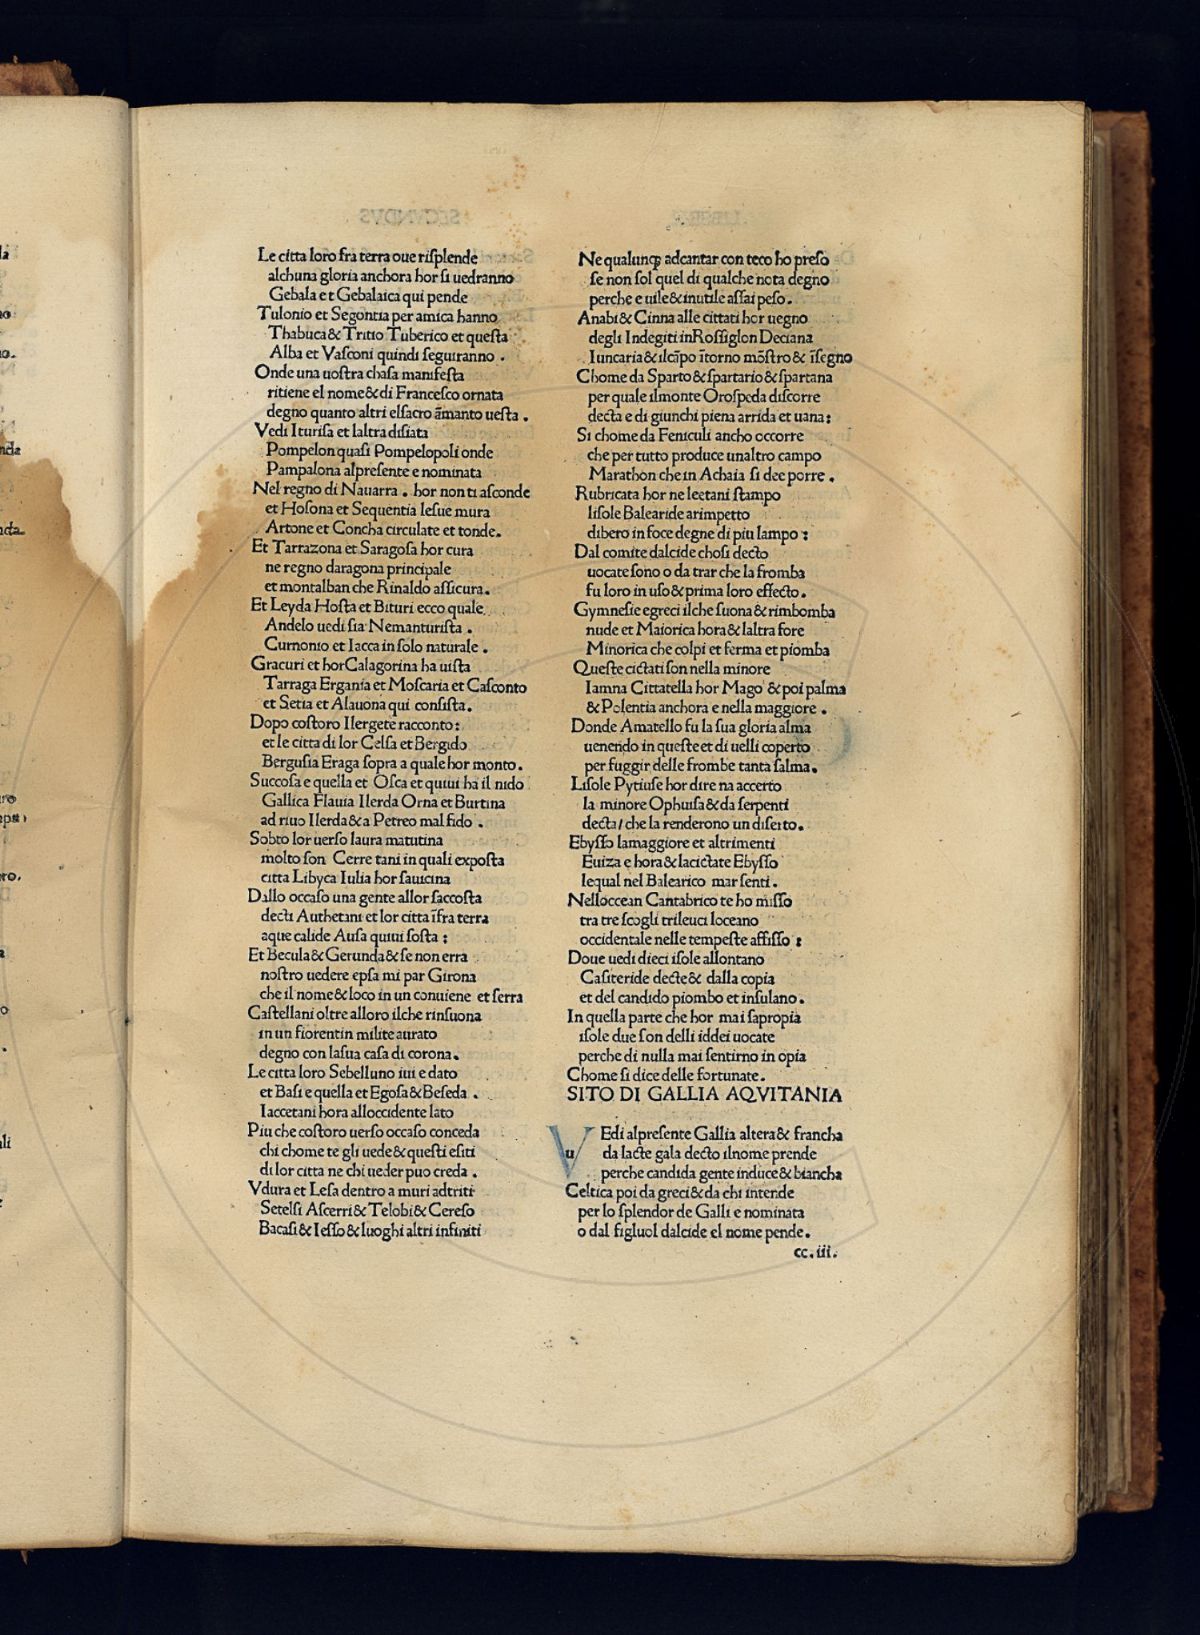 Le citta loro fra terra oue riſplende
alchuna gloria anchora hor ſi uedranno
Gebala et Gebalaica qui pende
Tulonio et Segontia per amica hanno
Thabuca & Tritio Tuberico et queſta
Alba et Vaſconi quindi ſeguiranno .
Onde una uoſtra chaſa manifeſta
ritiene el nome & di Franceſco ornata
degno quanto altri elſacro āmanto ueſta .
Vedi Ituriſa et laltra diſiata
Pompelon quaſi Pompelopoli onde
Pampalona alpreſente e nominata
Nel regno di Nauarra . hor non ti aſconde
et Hoſona et Sequentia leſue mura
Artone et Concha circulate et tonde.
Et Tarrazona et Saragoſa hor cura
ne regno daragona principale
et montalban che Rinaldo aſſicura.
Et Leyda Hoſta et Bituri ecco quale
Andelo uedi ſia Nemanturiſta .
Curnonio et Iacca in ſolo naturale .
Gracuri et hor Calagorina ha uiſta
Tarraga Ergania et Moſcaria et Caſconto
et Setia et Alauona qui conſiſta.
Dopo coſtoro Ilergete racconto:
et le citta di lor Celſa et Bergido
Berguſia Eraga ſopra a quale hor monto.
Succoſa e quella et Oſca et quiui ha il nido
Gallica Flauia Ilerda Orna et Burtina
ad riuo Ilerda & a Petreo mal fido .
Sobto lor uerſo laura matutina
molto ſon Cerre tani in quali expoſta
citta Libyca Iulia hor ſauicina
Dallo occaſo una gente allor ſaccoſta
decti Authetani et lor citta īfra terra
aque calide Auſa quiui ſoſta :
Et Becula & Gerunda & ſe non erra
noſtro uedere epſa mi par Girona
che il nome & loco in un conuiene et ſerra
Caſtellani oltre alloro ilche rinſuona
in un fiorentin milite aurato
degno con laſua caſa di corona.
Le citta loro Sebelluno iui e dato
et Baſi e quella et Egoſa & Beſeda .
Iaccetani hora alloccidente lato
Piu che coſtoro uerſo occaſo conceda
chi chome te gli uede & queſti eſiti
di lor citta ne chi ueder puo creda .
Vdura et Leſa dentro a muri adtriti
Setelſi Aſcerri & Telobi & Cereſo
Bacaſi & Ieſſo & luoghi altri infiniti
Ne qualunqꝫ adcantar con teco ho preſo
ſe non ſol quel di qualche nota degno
perche e uile & inutile aſſai peſo .
Anabi & Cinna alle cittati hor uegno
degli Indegiti in Roſſiglon Deciana
Iuncaria & ilcāpo ītorno mōſtro & īſegno
Chome da Sparto & ſpartario & ſpartana
per quale ilmonte Oroſpeda diſcorre
decta e di giunchi piena arrida et uana:
Si chome da Feniculi ancho occorre
che per tutto produce unaltro campo
Marathon che in Achaia ſi dee porre .
Rubricata hor ne leetani ſtampo
liſole Balearide arimpetto
dibero in foce degne di piu lampo :
Dal comite dalcide choſi decto
uocate ſono o da trar che la fromba
fu loro in uſo & prima loro effecto .
Gymneſie egreci ilche ſuona & rimbomba
nude et Maiorica hora & laltra fore
Minorica che colpi et ferma et piomba
Queſte cictati ſon nella minore
Iamna Cittatella hor Mago & poi palma
& Polentia anchora e nella maggiore .
Donde Amatello fu la ſua gloria alma
uenendo in queſte et di uelli coperto
per fuggir delle frombe tanta ſalma.
Liſole Pytiuſe hor dire na accerto
la minore Ophuiſa & da ſerpenti
decta / che la renderono un diſerto.
Ebyſſo lamaggiore et altrimenti
Euiza e hora & lacictate Ebyſſo
lequal nel Balearico mar ſenti .
Nelloccean Cantabrico te ho miſſo
tra tre ſcogli trileuci loceano
occidentale nelle tempeſte affiſſo :
Doue uedi dieci iſole allontano
Caſiteride decte & dalla copia
et del candido piombo et inſulano.
In quella parte che hor mai ſapropia
iſole due ſon delli iddei uocate
perche di nulla mai ſentirno in opia
Chome ſi dice delle fortunate.
SITO DI GALLIA AQVITANIA
VEdi alpreſente Gallia altera & francha
da lacte gala decto ilnome prende
perche candida gente induce & biancha
Celtica poi da greci & da chi intende
per lo ſplendor de Galli e nominata
o dal figluol dalcide el nome pende.
cc. iii.